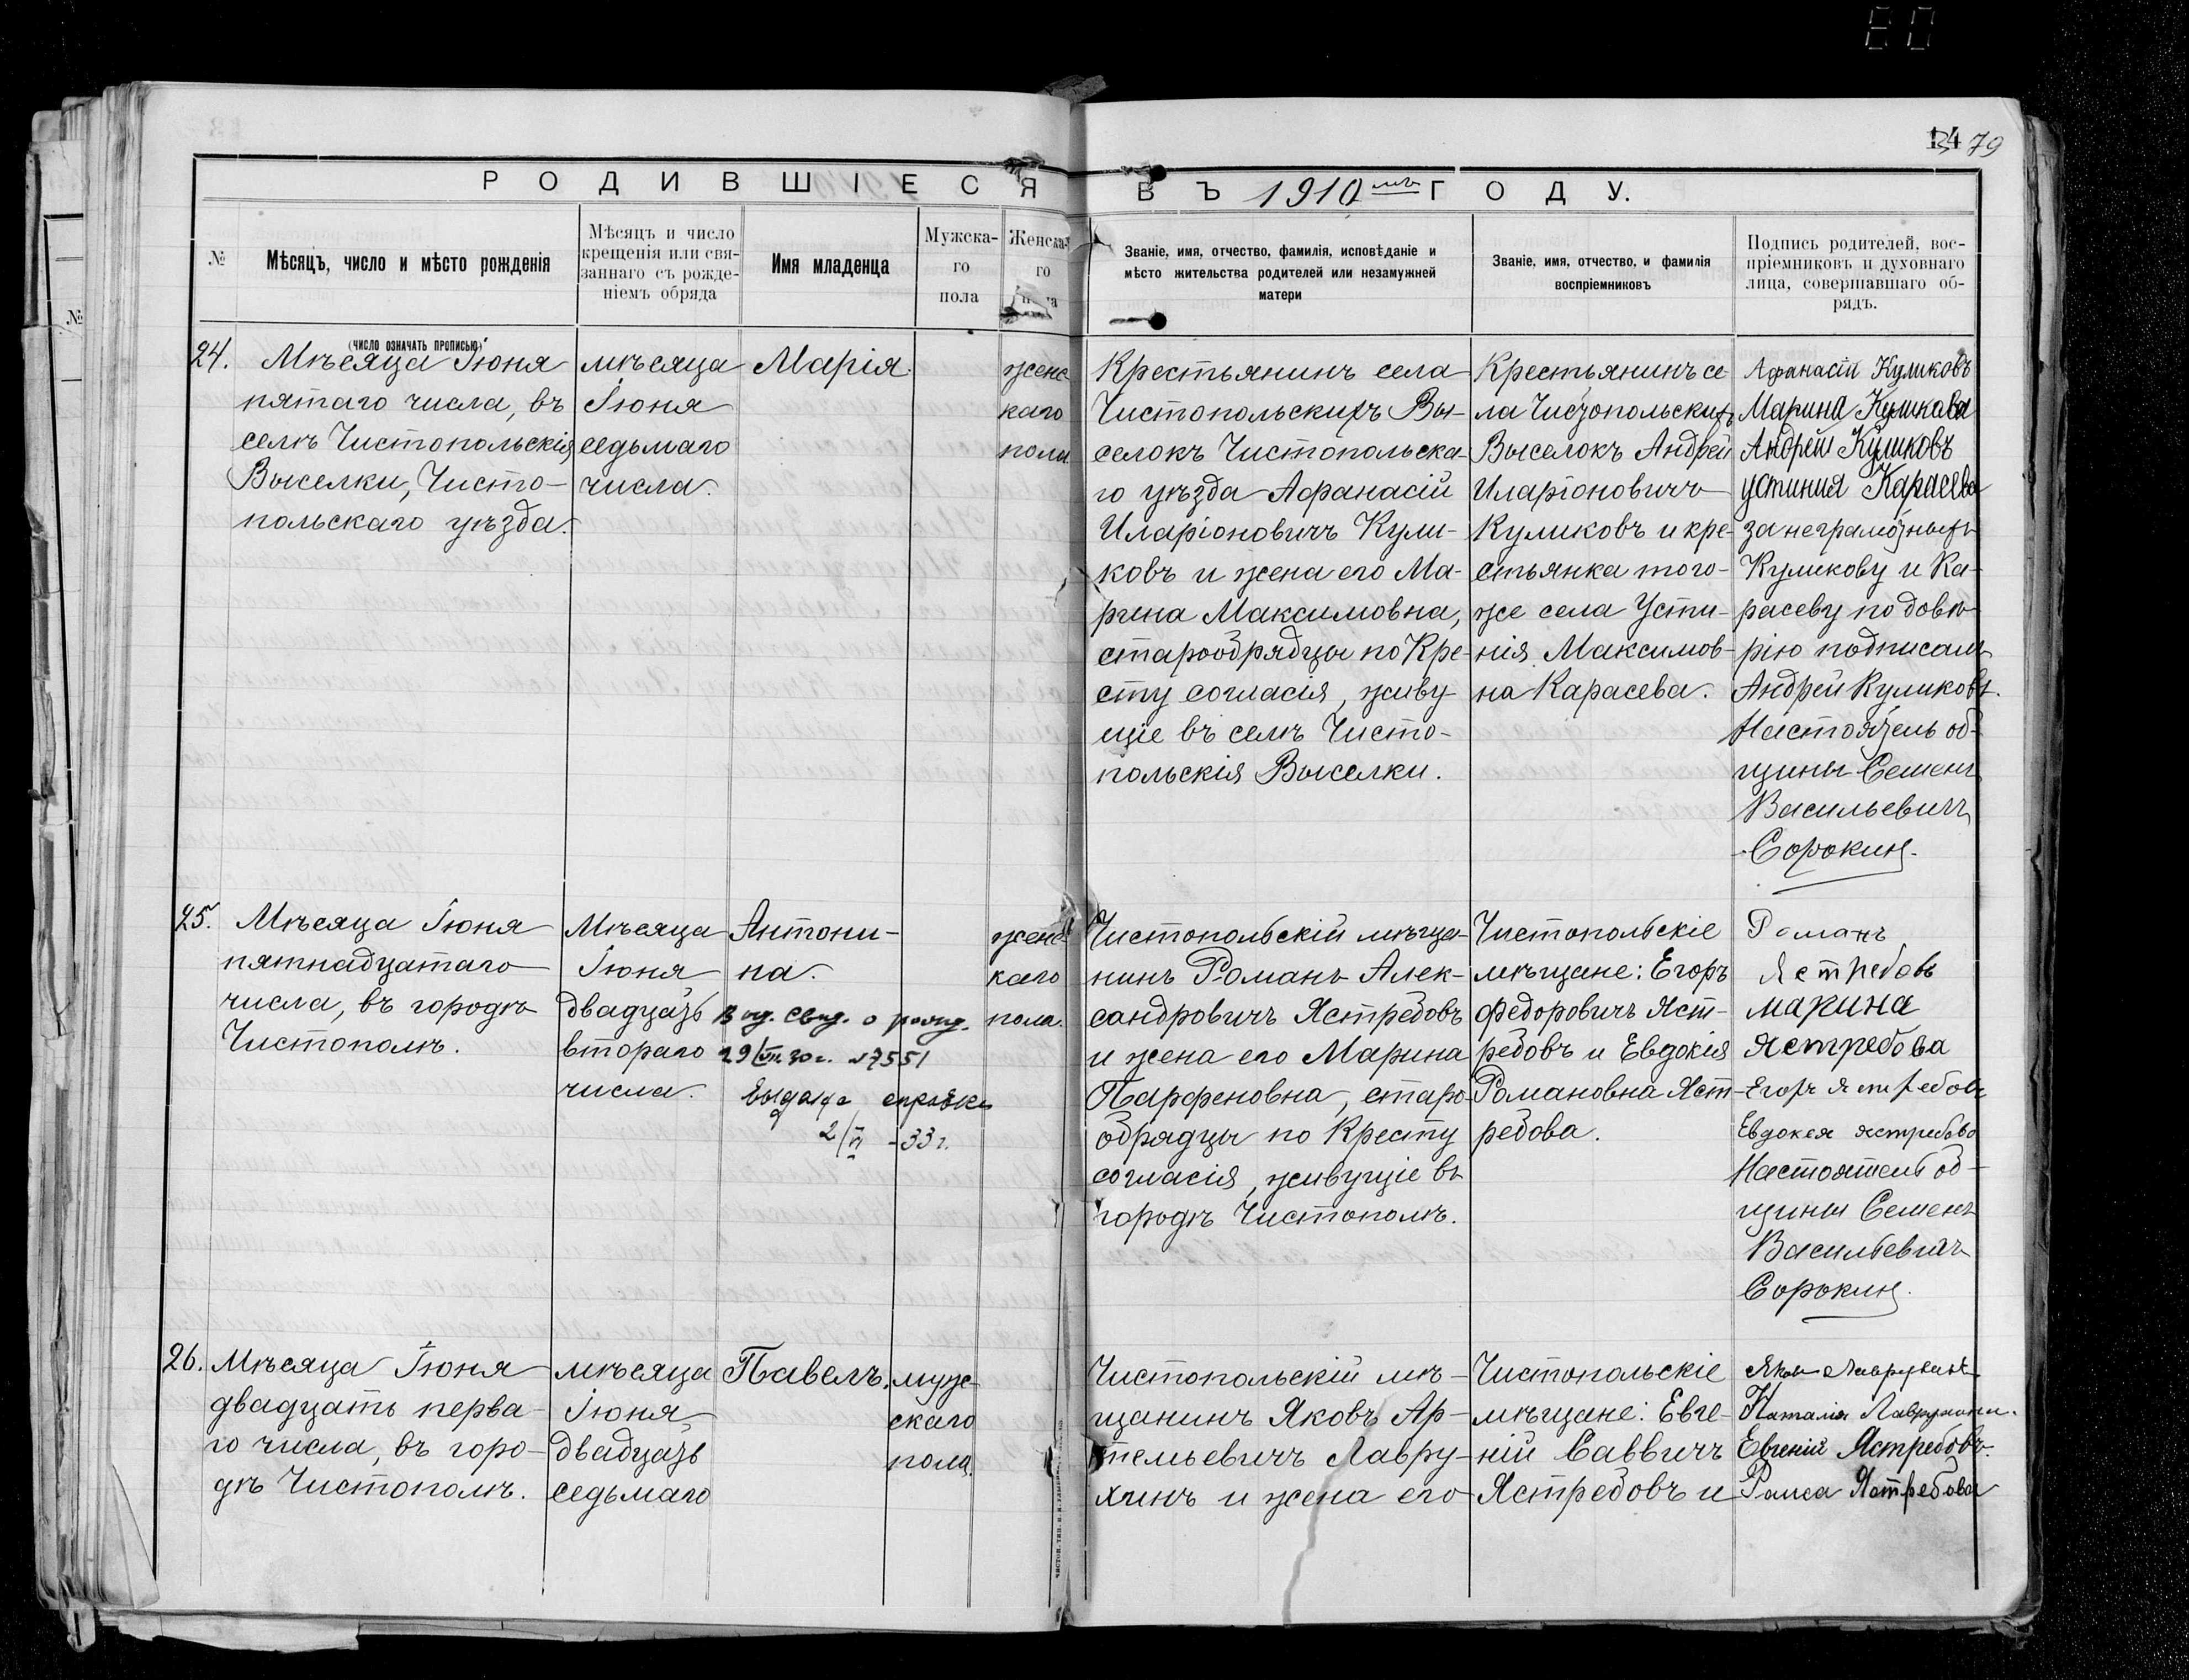 80
14 79
РОДИВШІЕСЯ ВЪ 1910мъ ГОДУ.
№
Мѣсяцъ, число и мѣсто рожденія
Мѣсяцъ и число
крещенія или свя-
заннаго съ рожде-
ніемъ обряда
Имя младенца
Мужска-
го
пола
Женска-
го
Званіе, имя, отчество, фамилія, исповѣданіе и
мѣсто жительства родителей или незамужней
матери
Званіе, имя, отчество, и фамилія
воспріемниковъ
Подпись родителей, вос-
пріемниковъ и духовнаго
лица, совершавшаго об-
рядъ.
№
(число означать прописью)
24.
Мѣсяца Іюня
пятаго числа, въ
селѣ Чистопольскія
Выселки, Чисто-
польскаго уѣзда.
мѣсяца
Іюня
седьмаго
числа.
Марія.
женс
каго
пола
Крестьянинъ села
Чистопольскихъ Вы-
селокъ Чистопольска-
го уѣзда Афанасій
Иларіоновичъ Кули-
ковъ и жена его Ма-
рина Максимовна,
старообрядцы по Кре-
сту согласія, живу-
щіе въ селѣ Чисто-
польскія Выселки.
Крестьянинъ се
ла Чистопольскихъ
Выселокъ Андрей
Иларіоновичъ
Куликовъ и кре-
стьянка того-
же села Усти-
нія Максимов-
на Карасева.
Афанасій Куликовъ
Марина Куликава
Андрей Куликовъ
устиния Карасева
за неграмотныхъ
Куликову и Ка-
расеву по довѣ-
рію подписалъ
Андрей Куликовъ.
Настоятель об-
щины Семенъ
Васильевичъ
Сорокинъ.
25.
Мѣсяца Іюня
пятнадцатаго
числа, въ городѣ
Чистополѣ.
Мѣсяца
Іюня
двадцать
втораго
числа.
Антони-
на.
Выд. свид. о рожд.
29/VII.30г. №7551
Выдана справка
2/VI -33г.
женс
каго
пола.
Чистопольскій мѣща-
нинъ Романъ Алек-
сандровичъ Ястребовъ
и жена его Марина
Парфеновна, старо-
обрядцы по Кресту
согласія, живущіе въ
городѣ Чистополѣ.
Чистопольскіе
мѣщане: Егоръ
Федоровичъ Яст-
ребовъ и Евдокія
Романовна Яст-
ребова.
Романъ
Ястребовъ
марина
Ястребова
Егоръ Ястребовъ
Евдокея ястребово
Настоятель об-
щины Семенъ
Васильевичъ
Сорокинъ.
26.
Мѣсяца Іюня
двадцать перва-
го числа, въ горо-
дѣ Чистополѣ.
мѣсяца
Іюня
двадцать
седьмаго
Павелъ.
муж-
скаго
пола.
Чистопольскій мѣ-
щанинъ Яковъ Ар-
темьевичъ Лавру-
хинъ и жена его
Чистопольскіе
мѣщане: Евге-
ній Саввичъ
Ястребовъ и
Наталія
Евгеній Ястребовъ.
Раиса Ястребова